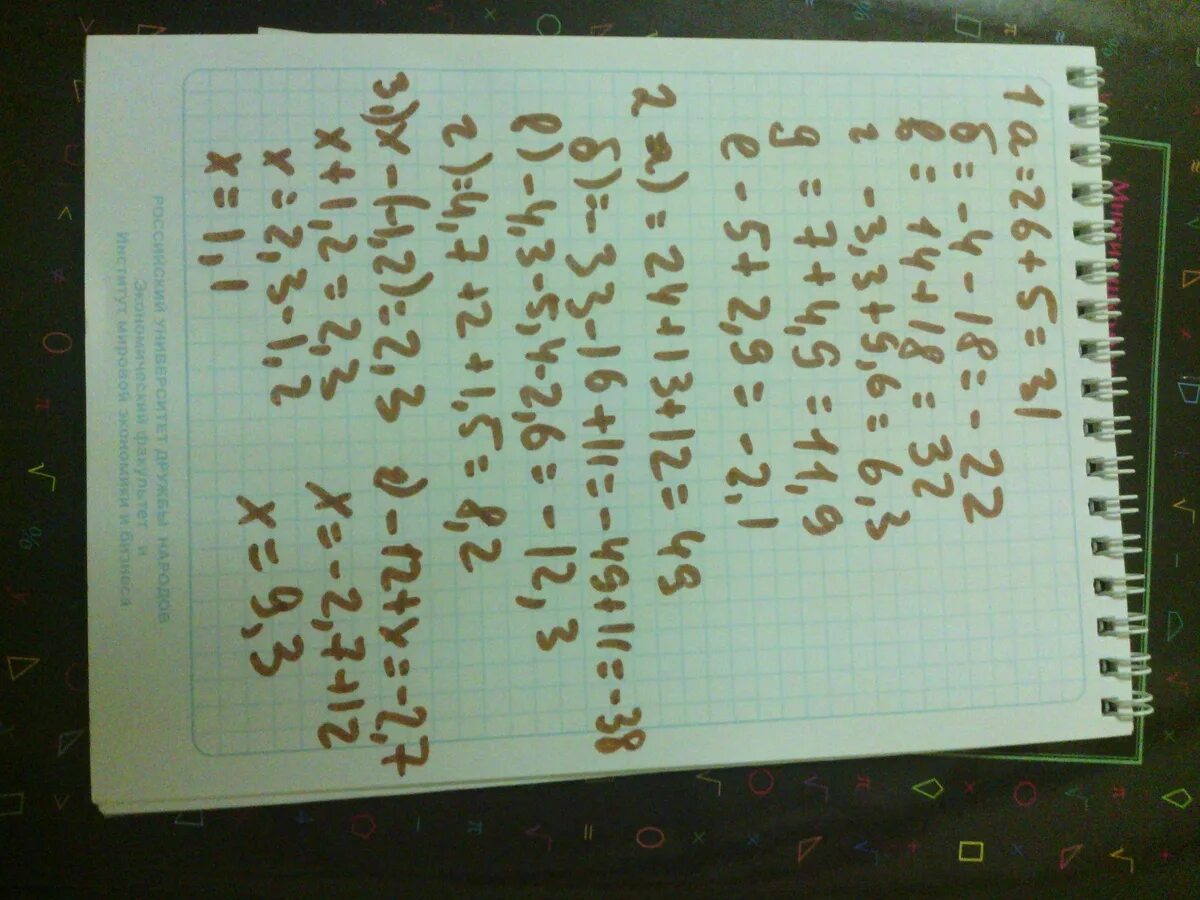 1 а=26+5=31
б=-4-18=-22
в=14+18=32
г -3,3+5,6=6,3
g=7+4,9=11,9
е-5+2,9=-2,1
2 а)=24+13+12=49
б)=-33-16+11=-49+11=-38
в)-4,3-5,4-2,6=-12,3
г)=4,7+2+1,5=8,2
3,)х-(-1,2)=2,3
х+1,2=2,3
х=2,3-1,2
х=1,1
-12+х=-2,7
х=-2,7+12
х=9,3
РОССИЙСКИЙ УНИВЕРСИТЕТ ДРУЖБЫ НАРОДОВ
Экономический факультет и
Институт мировой экономики и бизнеса